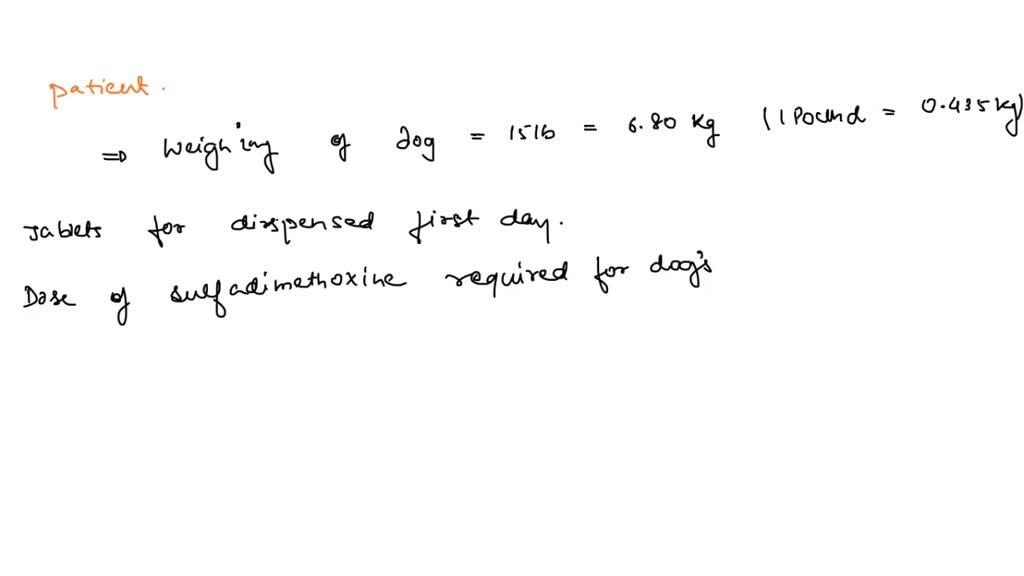 patient.
⇒ Weighing of dog = 15lb = 6.80 Kg (1 Pound = 0.435 Kg)
Tablets for dispensed first day.
Dose of sulfadimethoxine required for dog's